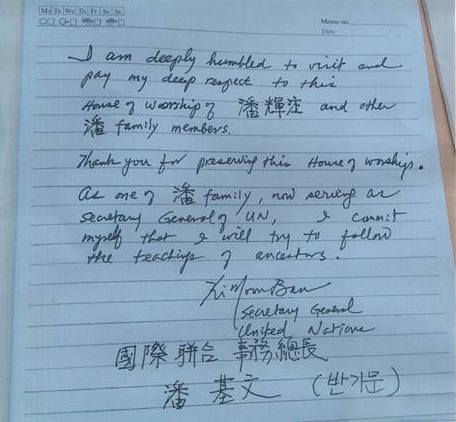 Mo Tu We Th Fr Sa Su
Memo no.
Date
I am deeply humbled to visit and
pay my deep respect to this
House of worship of 潘輝注 and other
潘 family members.
Thank you for preserving this House of worship.
As one of 潘 family, now serving as
Secretary General of UN, I commit
myself that I will try to follow
the teachings of ancestors.
Ki Moon Ban
Secretary General
United Nations
國際聯合 事務總長
潘 基文 (반기문)